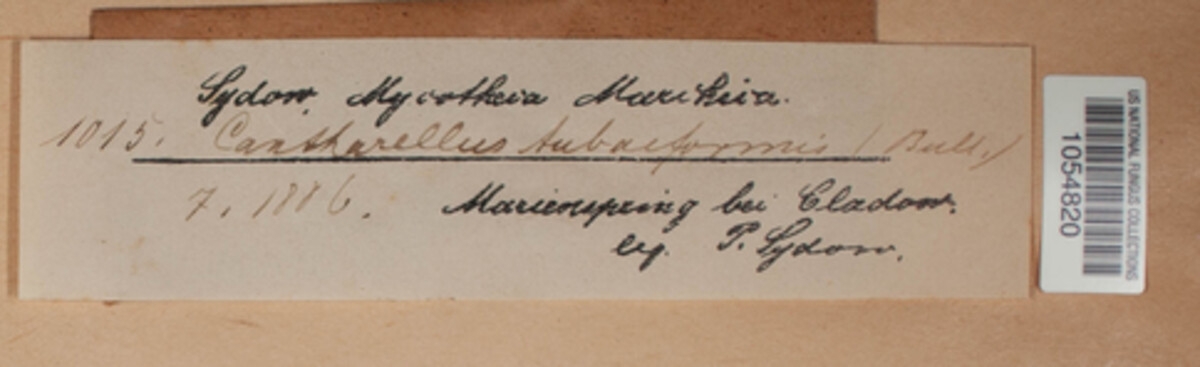 Sydow, Mycotheca Marchica.
1015. Cantharellus tubaeformis (Bull.)
7. 1886. Marienspring bei Cladow.
leg. P. Sydow.
US NATIONAL FUNGUS COLLECTIONS
1054820